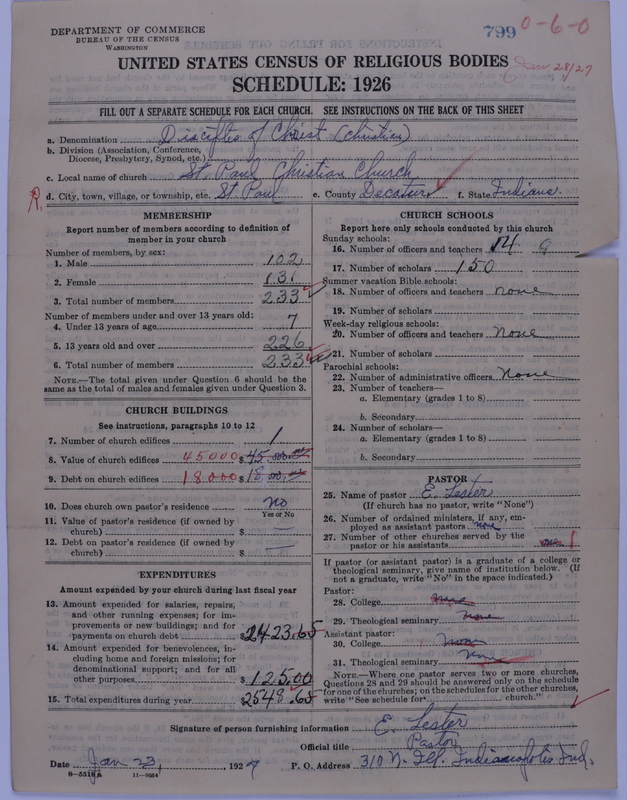 DEPARTMENT OF COMMERCE
BUREAU OF THE CENSUS
WASHINGTON
799 0-6-0
Jan 28/27
UNITED STATES CENSUS OF RELIGIOUS BODIES
SCHEDULE: 1926
FILL OUT A SEPARATE SCHEDULE FOR EACH CHURCH. SEE INSTRUCTIONS ON THE BACK OF THIS SHEET
a. Denomination Disciples of Christ (Christian)
b. Division (Association, Conference,
Diocese, Presbytery, Synod, etc.)
c. Local name of church St. Paul Christian Church
R. d. City, town, village, or township, etc. St Paul e. County Decatur f. State Indiana
MEMBERSHIP
Report number of members according to definition of
member in your church
Number of members, by sex:
1. Male 102
2. Female 131
3. Total number of members 233
Number of members under and over 13 years old:
4. Under 13 years of age 7
5. 13 years old and over 226
6. Total number of members 233
NOTE.—The total given under Question 6 should be the
same as the total of males and females given under Question 3.
CHURCH BUILDINGS
See instructions, paragraphs 10 to 12
7. Number of church edifices 1
8. Value of church edifices 45000 $ 45,000.00
9. Debt on church edifices 18000 $ 18,000.00
10. Does church own pastor's residence No
Yes or No
11. Value of pastor's residence (if owned by
church) $ —
12. Debt on pastor's residence (if owned by
church) $ —
EXPENDITURES
Amount expended by your church during last fiscal year
13. Amount expended for salaries, repairs,
and other running expenses; for im-
provements or new buildings; and for
payments on church debt $2423.65
14. Amount expended for benevolences, in-
cluding home and foreign missions; for
denominational support; and for all
other purposes $ 125.00
15. Total expenditures during year 2548.65
CHURCH SCHOOLS
Report here only schools conducted by this church
Sunday schools:
16. Number of officers and teachers 14 9
17. Number of scholars 150
Summer vacation Bible schools:
18. Number of officers and teachers none
19. Number of scholars
Week-day religious schools:
20. Number of officers and teachers None
21. Number of scholars
Parochial schools:
22. Number of administrative officers None
23. Number of teachers—
a. Elementary (grades 1 to 8)
b. Secondary
24. Number of scholars—
a. Elementary (grades 1 to 8)
b. Secondary
PASTOR
25. Name of pastor E. Lester
(If church has no pastor, write "None")
26. Number of ordained ministers, if any, em-
ployed as assistant pastors none
27. Number of other churches served by the
pastor or his assistants one 1
If pastor (or assistant pastor) is a graduate of a college or
theological seminary, give name of institution below. (If
not a graduate, write "No" in the space indicated.)
Pastor:
28. College None
29. Theological seminary None
Assistant pastor:
30. College None
31. Theological seminary None
NOTE.—Where one pastor serves two or more churches,
Questions 28 and 29 should be answered only on the schedule
for one of the churches; on the schedules for the other churches,
write "See schedule for church."
Signature of person furnishing information E. Lester
Official title Pastor
Date Jan 23, 1927 P. O. Address 310 N. Ill. Indianapolis Ind.
8—5518A 11—9564